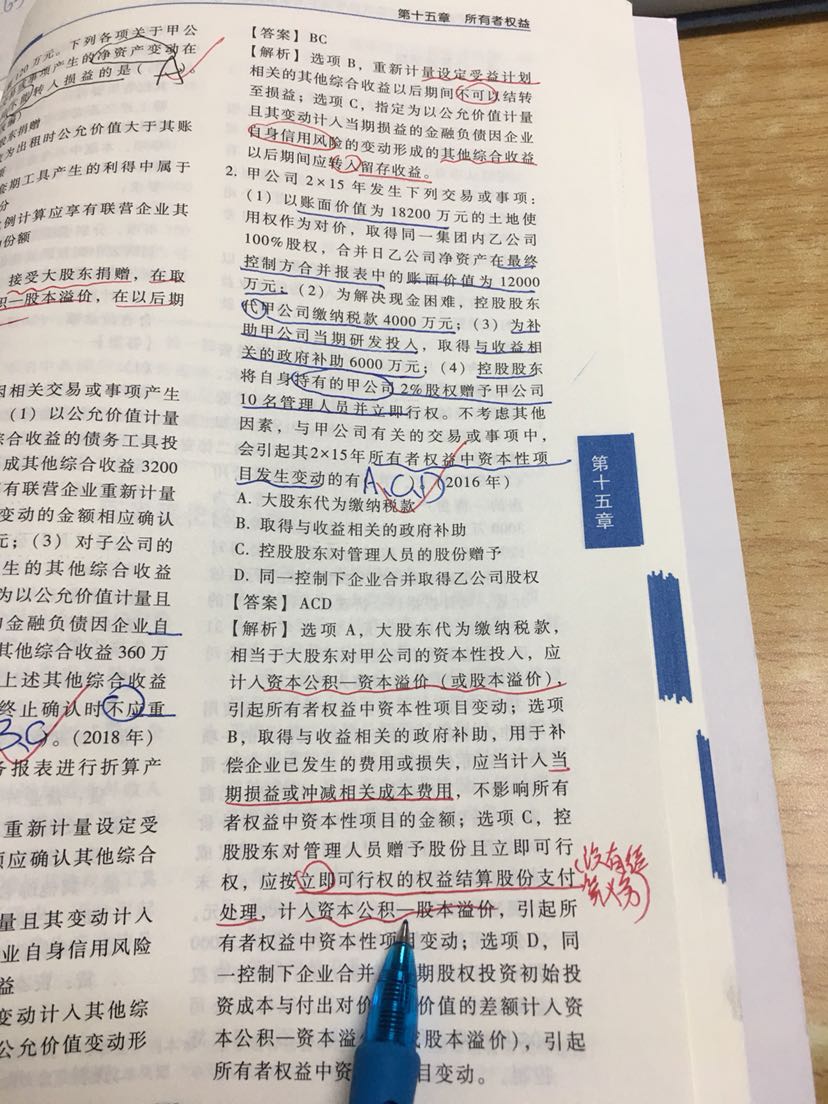 第十五章 所有者权益
120万元。下列各项关于甲公
或事项产生的净资产变动在
转入损益的是( A )。
股东捐赠
为出租时公允价值大于其账
套期工具产生的利得中属于
例计算应享有联营企业其
份额
接受大股东捐赠，在取
积—股本溢价，在以后期
因相关交易或事项产生
(1)以公允价值计量
综合收益的债务工具投
成其他综合收益3200
有联营企业重新计量
变动的金额相应确认
元；(3)对子公司的
生的其他综合收益
为以公允价值计量且
金融负债因企业自
其他综合收益360万
上述其他综合收益
终止确认时不应重
BC)。(2018年)
务报表进行折算产
重新计量设定受
应确认其他综合
量且其变动计入
业自身信用风险
益
变动计入其他综
公允价值变动形
【答案】BC
【解析】选项B，重新计量设定受益计划
相关的其他综合收益以后期间不可以结转
至损益；选项C，指定为以公允价值计量
且其变动计入当期损益的金融负债因企业
自身信用风险的变动形成的其他综合收益
以后期间应转入留存收益。
2. 甲公司2×15年发生下列交易或事项：
(1)以账面价值为18200万元的土地使
用权作为对价，取得同一集团内乙公司
100%股权，合并日乙公司净资产在最终
控制方合并报表中的账面价值为12000
万元；(2)为解决现金困难，控股股东
代甲公司缴纳税款4000万元；(3)为补
助甲公司当期研发投入，取得与收益相
关的政府补助6000万元；(4)控股股东
将自身持有的甲公司2%股权赠予甲公司
10名管理人员并立即行权。不考虑其他
因素，与甲公司有关的交易或事项中，
会引起其2×15年所有者权益中资本性项
目发生变动的有 ACD (2016年)
A. 大股东代为缴纳税款
B. 取得与收益相关的政府补助
C. 控股股东对管理人员的股份赠予
D. 同一控制下企业合并取得乙公司股权
【答案】ACD
【解析】选项A，大股东代为缴纳税款，
相当于大股东对甲公司的资本性投入，应
计入资本公积—资本溢价(或股本溢价)，
引起所有者权益中资本性项目变动；选项
B，取得与收益相关的政府补助，用于补
偿企业已发生的费用或损失，应当计入当
期损益或冲减相关成本费用，不影响所有
者权益中资本性项目的金额；选项C，控
股股东对管理人员赠予股份且立即可行
权，应按立即可行权的权益结算股份支付
处理，计入资本公积—股本溢价，引起所
有者权益中资本性项目变动；选项D，同
一控制下企业合并 期股权投资初始投
资成本与付出对价 价值的差额计入资
本公积—资本溢 或股本溢价)，引起
所有者权益中资 目变动。
第十五章